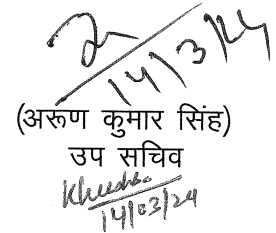 14/3/24
(अरूण कुमार सिंह)
उप सचिव
14/03/24